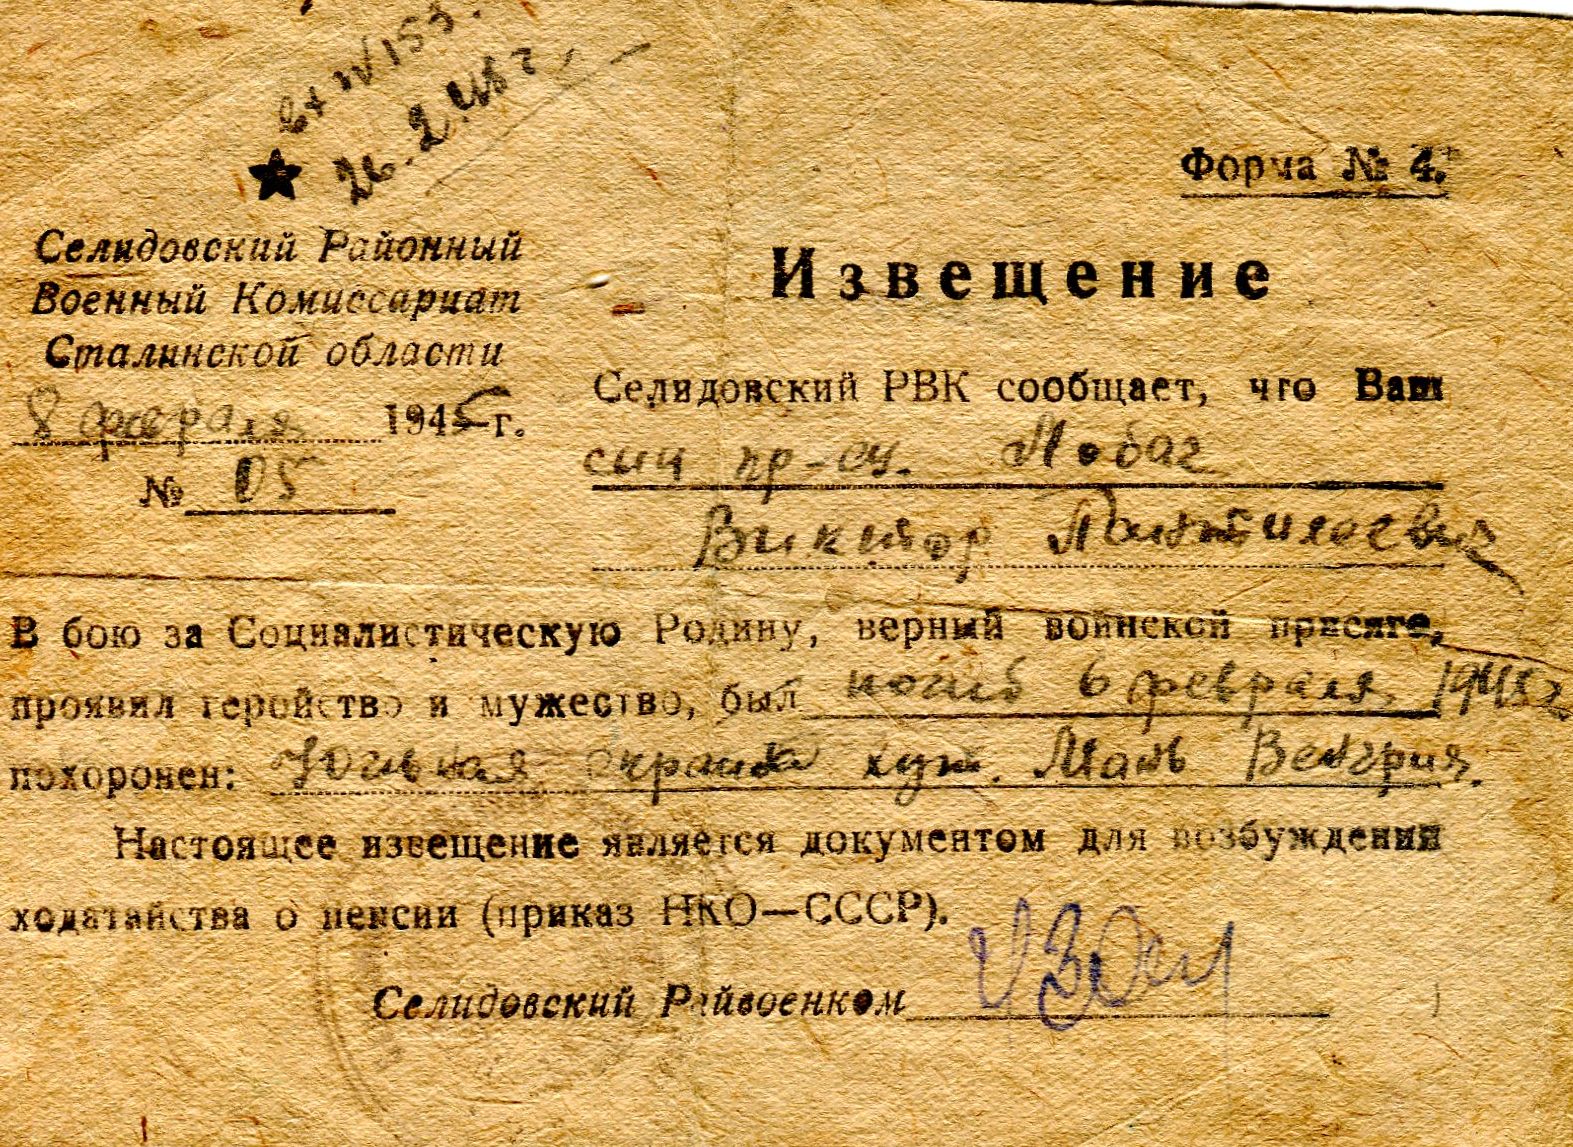 вх № 155.
26.2.45 г.
Форма № 4.
Селидовский Районный
Военный Комиссариат
Сталинской области
8 февраля 1945 г.
№ 05
Извещение
Селидовский РВК сообщает, что Ваш
сын кр-ец. Лобач
Виктор Пантилеевич
В бою за Социалистическую Родину, верный воинской присяге,
проявил геройство и мужество, был погиб 6 февраля 1945 г
похоронен: Южная окраина хут. Мань Венгрия.
Настоящее извещение является документом для возбуждении
ходатайства о пенсии (приказ НКО—СССР).
Селидовский Райвоенком